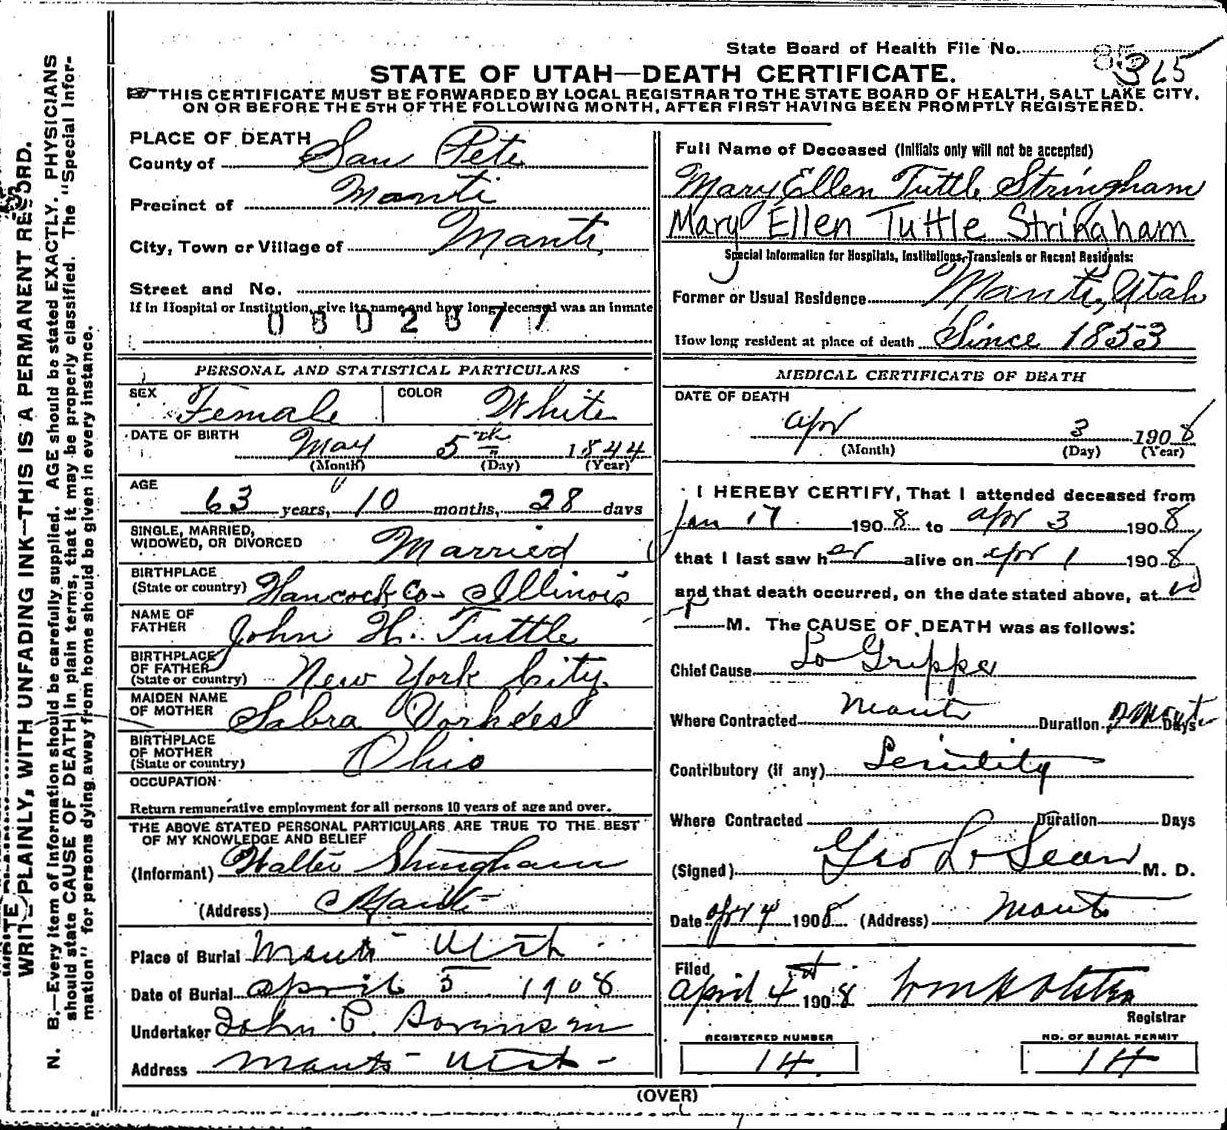 State Board of Health File No. 85 365
STATE OF UTAH—DEATH CERTIFICATE.
THIS CERTIFICATE MUST BE FORWARDED BY LOCAL REGISTRAR TO THE STATE BOARD OF HEALTH, SALT LAKE CITY,
ON OR BEFORE THE 5TH OF THE FOLLOWING MONTH, AFTER FIRST HAVING BEEN PROMPTLY REGISTERED.
WRITE PLAINLY, WITH UNFADING INK—THIS IS A PERMANENT RECORD.
N. B.—Every item of information should be carefully supplied. AGE should be stated EXACTLY. PHYSICIANS
should state CAUSE OF DEATH in plain terms, that it may be properly classified. The "Special Infor-
mation" for persons dying away from home should be given in every instance.
PLACE OF DEATH
County of San Pete
Precinct of Manti
City, Town or Village of Manti
Street and No.
If in Hospital or Institution, give its name and how long deceased was an inmate
0802677
PERSONAL AND STATISTICAL PARTICULARS
SEX Female COLOR White
DATE OF BIRTH May 5th 1844
(Month) (Day) (Year)
AGE
63 years, 10 months, 28 days
SINGLE, MARRIED,
WIDOWED, OR DIVORCED Married
BIRTHPLACE
(State or country) Hancock Co- Illinois
NAME OF
FATHER John H. Tuttle
BIRTHPLACE
OF FATHER
(State or country) New York City
MAIDEN NAME
OF MOTHER Sabra Vorhees
BIRTHPLACE
OF MOTHER
(State or country) Ohio
OCCUPATION
Return remunerative employment for all persons 10 years of age and over.
THE ABOVE STATED PERSONAL PARTICULARS ARE TRUE TO THE BEST
OF MY KNOWLEDGE AND BELIEF
(Informant) Walter Stringham
(Address) Manti
Place of Burial Manti Utah
Date of Burial April 5 1908
Undertaker John P. Sorensen
Address Manti Utah
Full Name of Deceased (Initials only will not be accepted)
Mary Ellen Tuttle Stringham
Mary Ellen Tuttle Stringham
Special Information for Hospitals, Institutions, Transients or Recent Residents:
Former or Usual Residence Manti, Utah
How long resident at place of death Since 1853
MEDICAL CERTIFICATE OF DEATH
DATE OF DEATH
Apr 3 1908
(Month) (Day) (Year)
I HEREBY CERTIFY, That I attended deceased from
Jan 17 1908 to Apr 3 1908
that I last saw her alive on Apr 1 1908
and that death occurred, on the date stated above, at 10
P M. The CAUSE OF DEATH was as follows:
Chief Cause La Grippe
Where Contracted Manti Duration Days
Contributory (if any) Senility
Where Contracted Duration Days
(Signed) Geo L. M. D.
Date Apr 4 1908 (Address) Manti
Filed
April 4th 1908
Registrar
REGISTERED NUMBER NO. OF BURIAL PERMIT
14 14
(OVER)